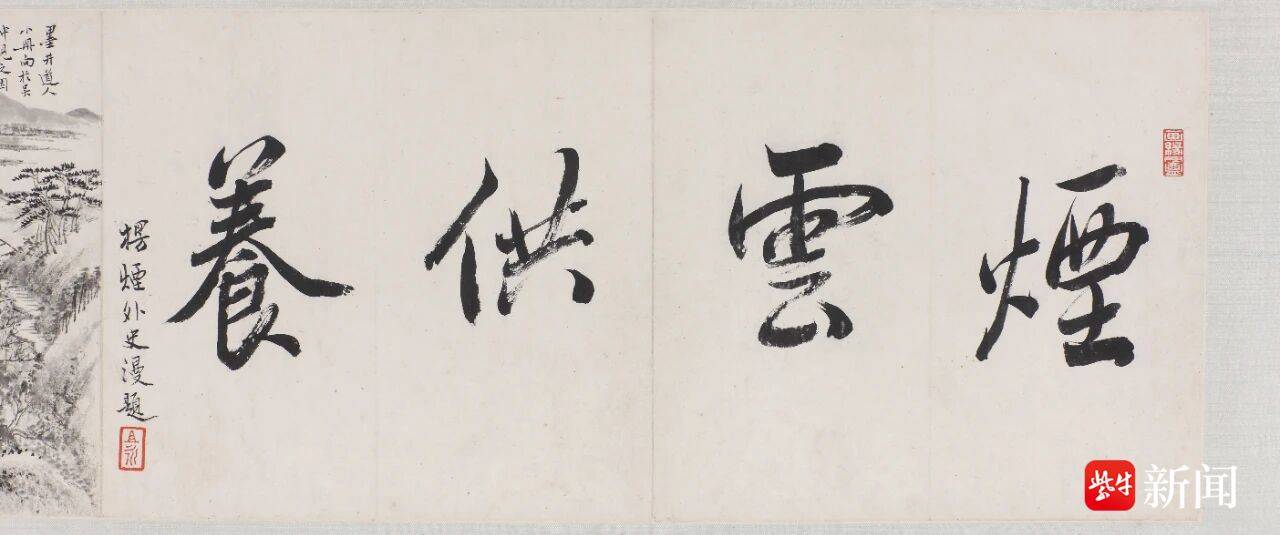 煙雲供養
楞煙外史漫題
墨井道人
小冊向於吳
紫牛 新闻